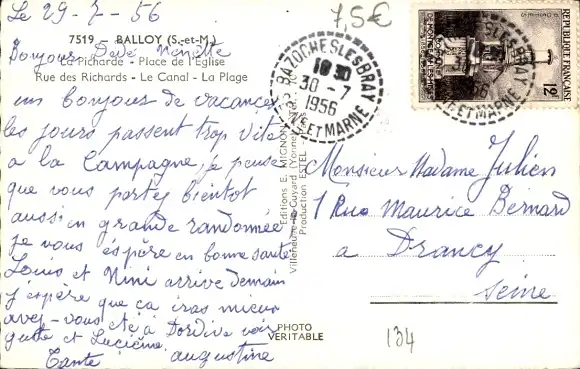 Le 29-7-56
7,5€
7519 - BALLOY (S.-et-M.)
Bonjours Dédé Nénette
La Picharde - Place de l'Eglise
Rue des Richards - Le Canal - La Plage
un bonjours de vacances
les jours passent trop vite
a la Campagne, je pense
que vous partez bientot
aussi en grande randonnée
je vous éspère en bonne santé
Louis et Nini arrive demain
j'éspère que ça iras mieux
avez-vous eté à Dordive voir
guste et Lucienne
Tante augustine
Editions E. MIGNON
Villeneuve-la-Guyard (Yonne)
Production ESTEL
PHOTO
VERITABLE
BAZOCHES LES BRAY
18 30
30-7
1956
SEINE ET MARNE
REPUBLIQUE FRANÇAISE
12F
Monsieur Madame Julien
1 Rue Maurice Bernard
a Drancy
Seine
134